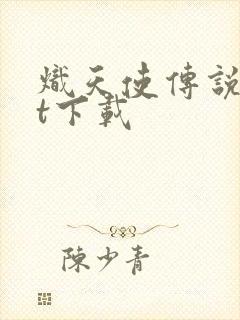 熾天使傳說
t下載
陳少青